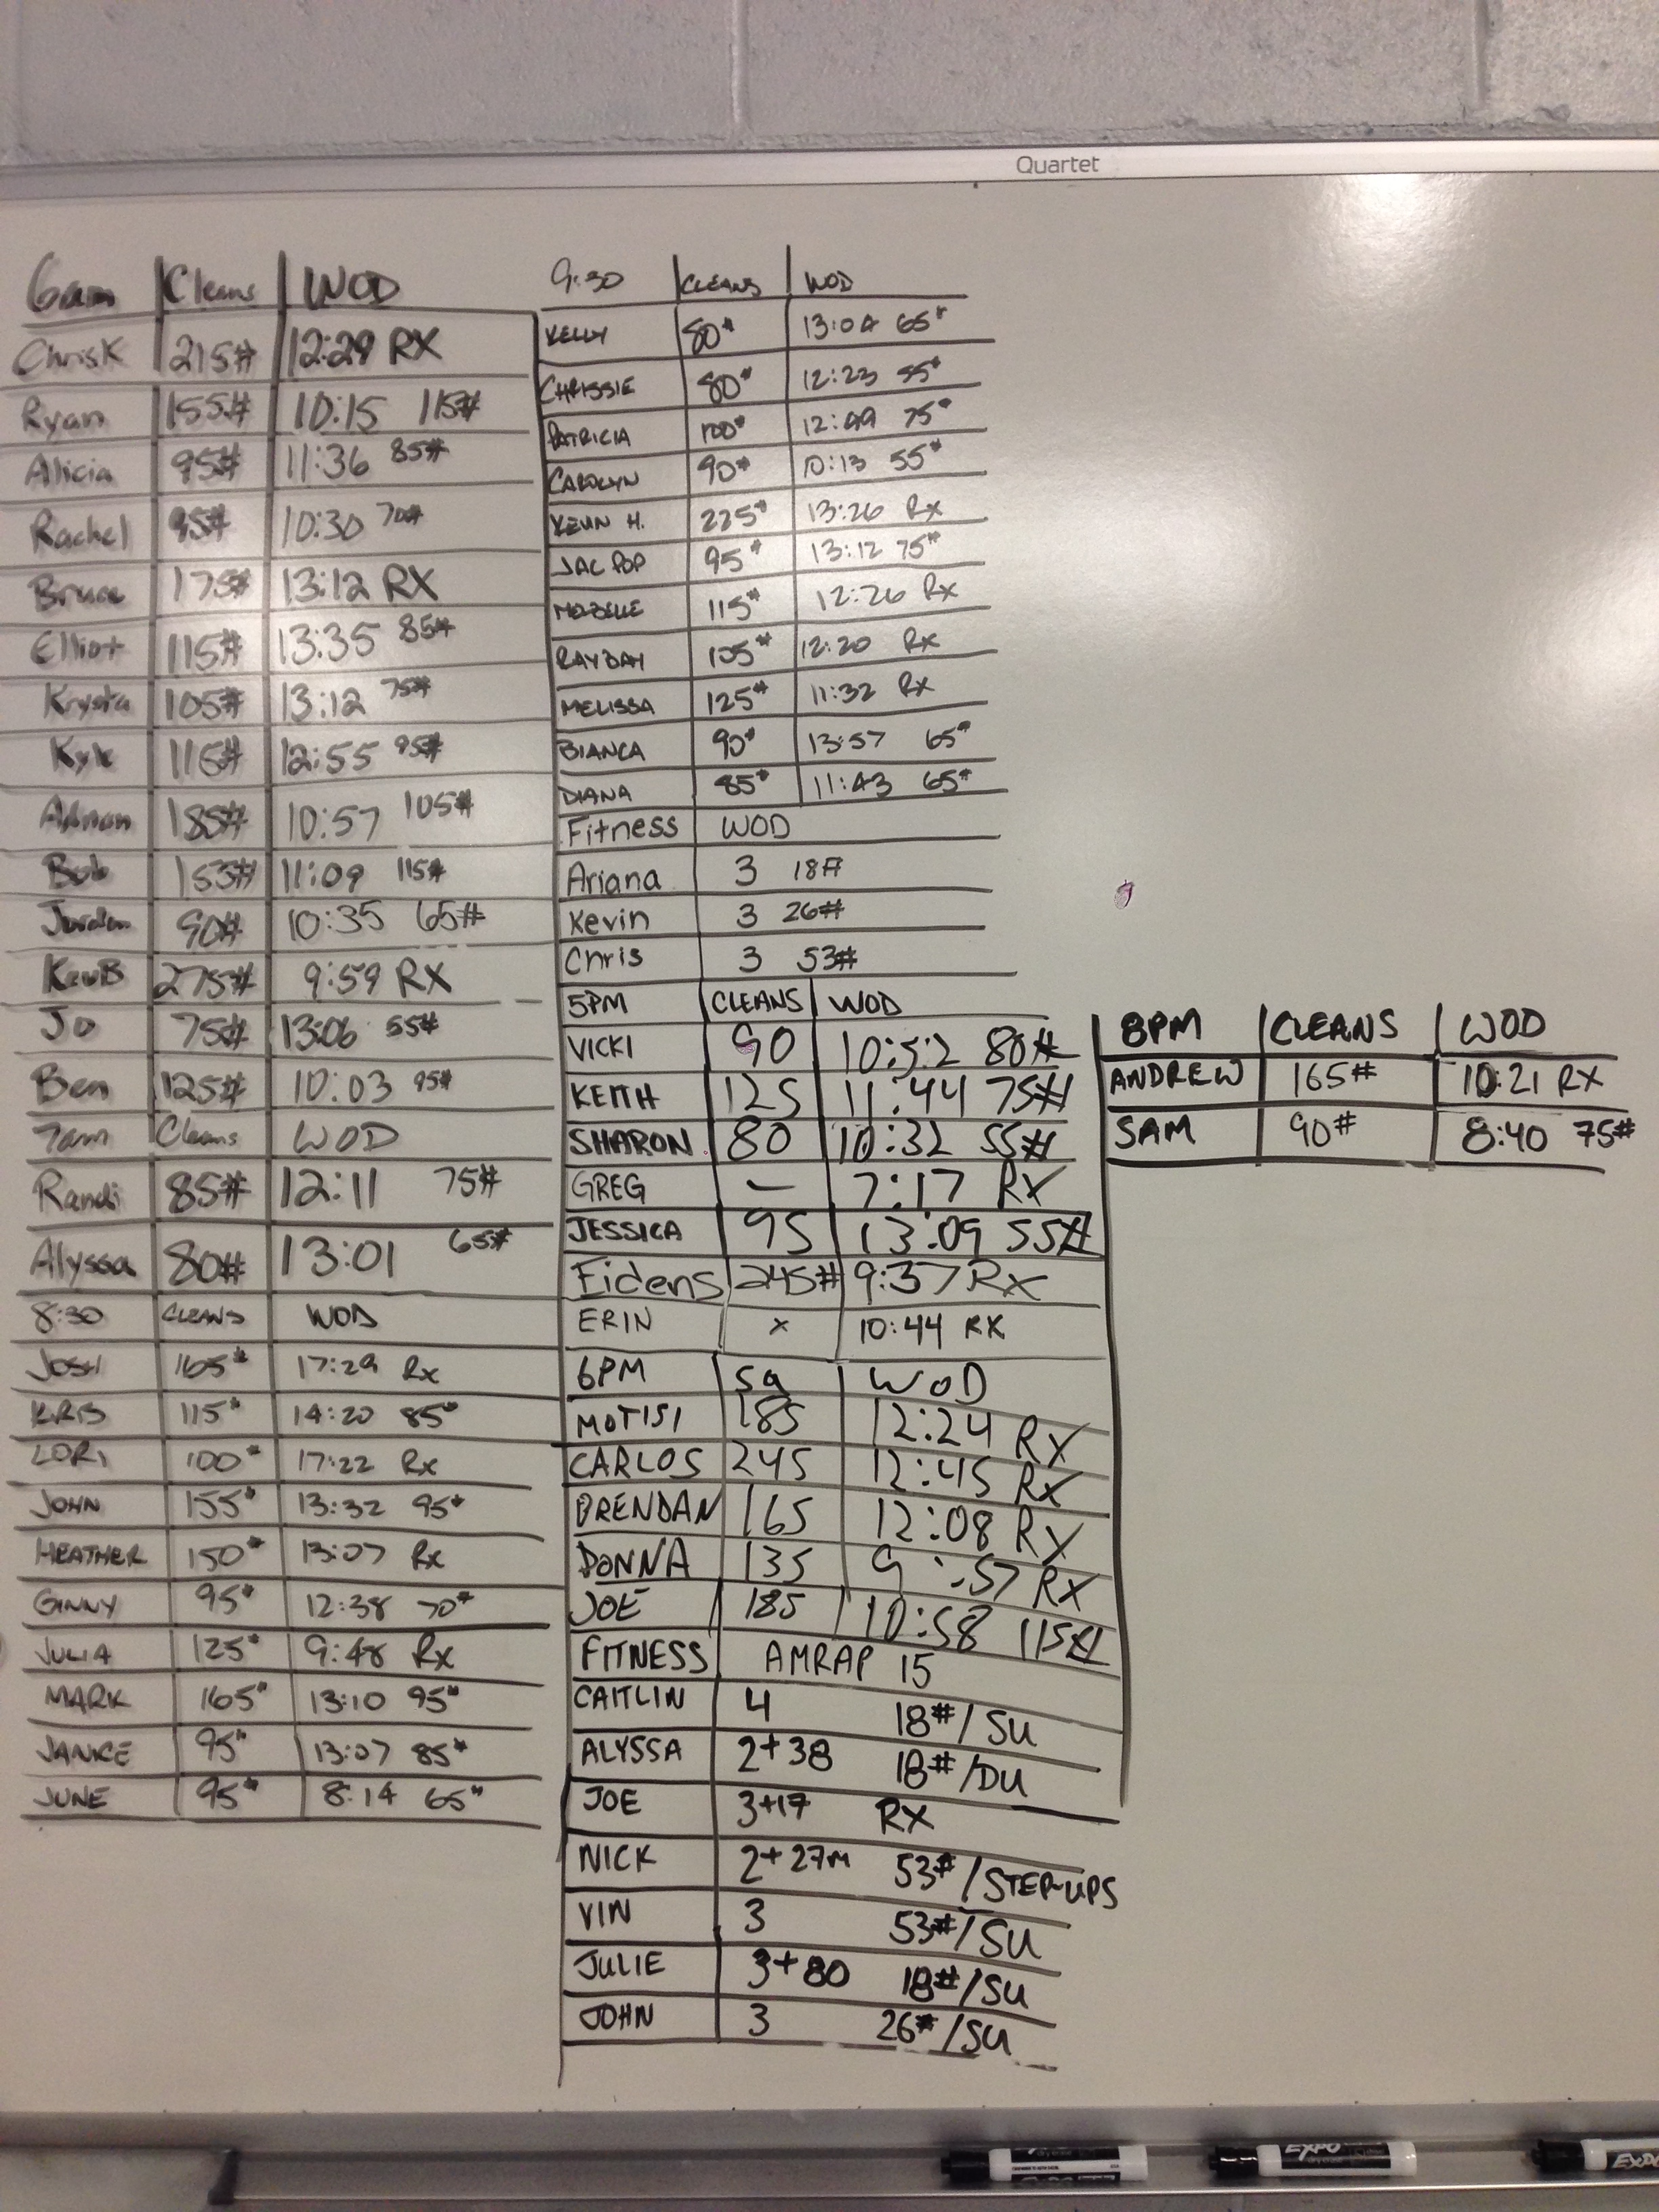 Quartet
6am Cleans WOD
ChrisK 215# 12:29 RX
Ryan 155# 10:15 115#
Alicia 95# 11:36 85#
Rachel 95# 10:30 70#
Bruce 175# 13:12 RX
Elliot 115# 13:35 85#
Krysta 105# 13:12 75#
Kyle 115# 12:55 95#
185# 10:57 105#
Bob 153# 11:09 115#
Jordan 90# 10:35 65#
KevB 275# 9:59 RX
Jo 75# 13:06 55#
Ben 125# 10:03 95#
7am Cleans WOD
Randi 85# 12:11 75#
Alyssa 80# 13:01 65#
8:30 CLEANS WOD
JOSH 165# 17:29 Rx
KRIS 115# 14:20 85#
LORI 100# 17:22 Rx
JOHN 155# 13:32 95#
HEATHER 150# 13:07 Rx
GINNY 95# 12:38 70#
JULIA 125# 9:48 Rx
MARK 165# 13:10 95#
JANICE 95# 13:07 85#
JUNE 95# 8:14 65#
9:30 CLEANS WOD
KELLY 80# 13:04 65#
CHRISSIE 80# 12:23 55#
PATRICIA 100# 12:49 75#
CAROLYN 90# 10:13 55#
KEVIN H. 225# 13:26 Rx
JAC POP 95# 13:12 75#
MOZELLE 115# 12:26 Rx
RAYDAY 105# 12:20 Rx
MELISSA 125# 11:32 Rx
BIANCA 90# 13:57 65#
DIANA 85# 11:43 65#
Fitness WOD
Ariana 3 18#
Kevin 3 26#
Chris 3 53#
5PM CLEANS WOD
VICKI 90 10:52 80#
KEITH 125 11:44 75#
SHARON 80 10:32 55#
GREG — 7:17 RX
JESSICA 95 13:09 55#
Eidens 245# 9:37 RX
ERIN x 10:44 RX
6PM SQ WOD
MOTISI 185 12:24 RX
CARLOS 245 12:45 RX
BRENDAN 165 12:08 RX
DONNA 135 9:57 RX
JOE 185 10:58 115#
FITNESS AMRAP 15
CAITLIN 4 18#/SU
ALYSSA 2+38 18#/DU
JOE 3+17 RX
NICK 2+27m 53#/STEP-UPS
VIN 3 53#/SU
JULIE 3+80 18#/SU
JOHN 3 26#/SU
8PM CLEANS WOD
ANDREW 165# 10:21 RX
SAM 90# 8:40 75#
EXPO
EXPO